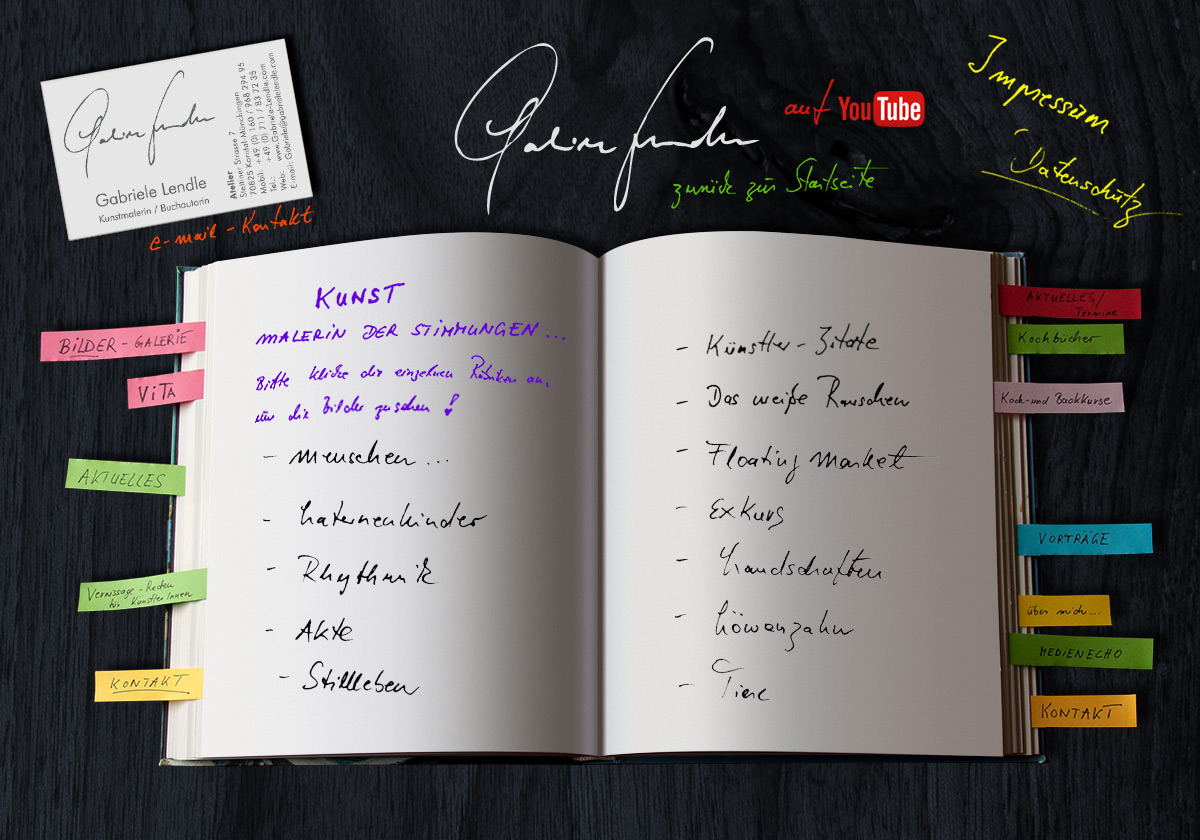 Gabriele Lendle
Gabriele Lendle
Kunstmalerin / Buchautorin
Atelier
Stettiner Strasse 7
70825 Korntal-Münchingen
Mobil: +49 (0) 160 / 968 294 95
Tel.: +49 (0) 711 / 83 72 35
Web: www.Gabriele-Lendle.com
E-mail: Gabriele@gabrielelendle.com
e-mail - Kontakt
Gabriele Lendle
auf YouTube
zurück zur Startseite
Impressum
Datenschutz
KUNST
MALERIN DER STIMMUNGEN ...
Bitte klicke die einzelnen Rubriken an,
um die Bilder zu sehen !
- Menschen ...
- Laternenkinder
- Rhythmik
- Akte
- Stillleben
- Künstler - Zitate
- Das weiße Rauschen
- Floating market
- Exkurs
- Landschaften
- Löwenzahn
- Tiere
BILDER - GALERIE
VITA
AKTUELLES
Vernissage - Reden
für KünstlerInnen
KONTAKT
AKTUELLES /
Termine
Kochbücher
Koch- und Backkurse
VORTRÄGE
über mich ...
MEDIENECHO
KONTAKT